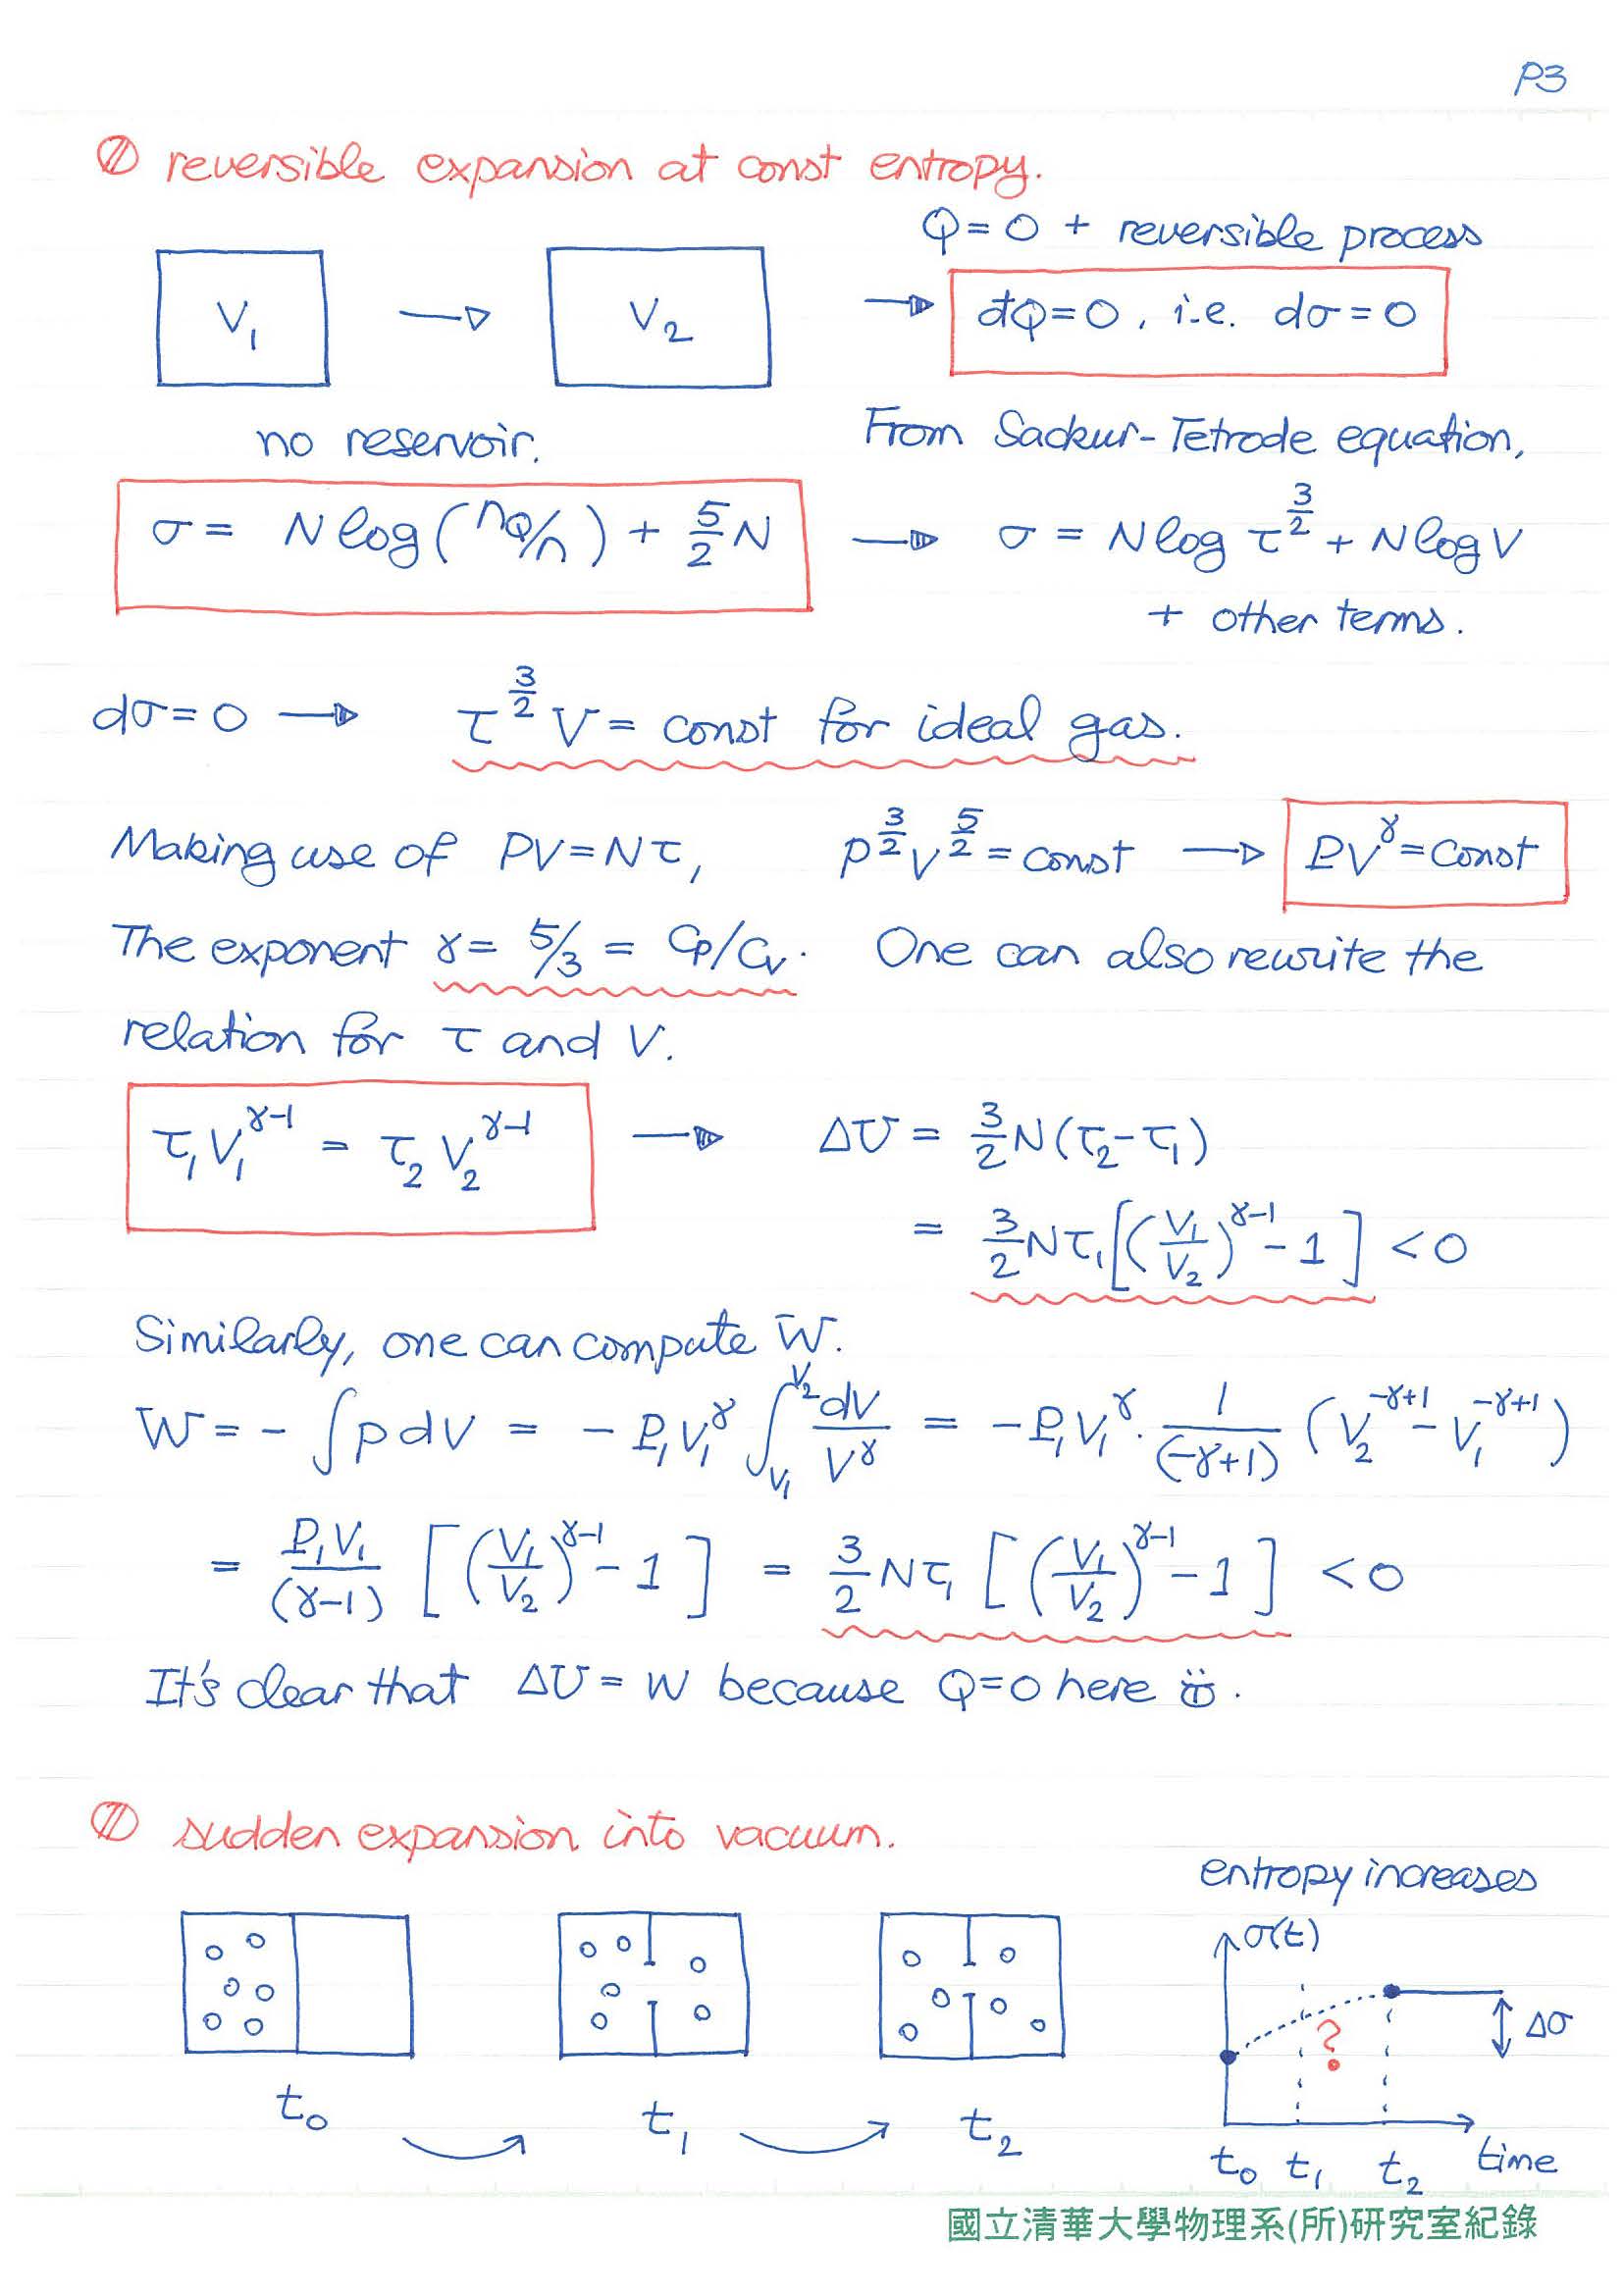 P3
reversible expansion at const entropy.
Q=0 + reversible process
V₁ → V₂ → đQ=0, i.e. dσ=0
no reservoir.
From Sackur-Tetrode equation,
σ = N log(n_Q/n) + 5/2 N → σ = N log τ^{3/2} + N log V
+ other terms.
dσ=0 → τ^{3/2} V = const for ideal gas.
Making use of PV=Nτ, P^{3/2} V^{5/2} = const → PV^γ = const
The exponent γ = 5/3 = Cp/Cv. One can also rewrite the
relation for τ and V.
τ₁V₁^{γ-1} = τ₂V₂^{γ-1} → ΔU = 3/2 N(τ₂-τ₁)
= 3/2 Nτ₁[(V₁/V₂)^{γ-1} - 1] < 0
Similarly, one can compute W.
W = -∫pdV = -P₁V₁^γ ∫_{V₁}^{V₂} dV/V^γ = -P₁V₁^γ · 1/(-γ+1) (V₂^{-γ+1} - V₁^{-γ+1})
= P₁V₁/(γ-1) [(V₁/V₂)^{γ-1} - 1] = 3/2 Nτ₁ [(V₁/V₂)^{γ-1} - 1] < 0
It's clear that ΔU = W because Q=0 here
sudden expansion into vacuum.
entropy increases
σ(t)
?
Δσ
t₀ t₁ t₂
t₀ t₁ t₂ time
國立清華大學物理系(所)研究室紀錄